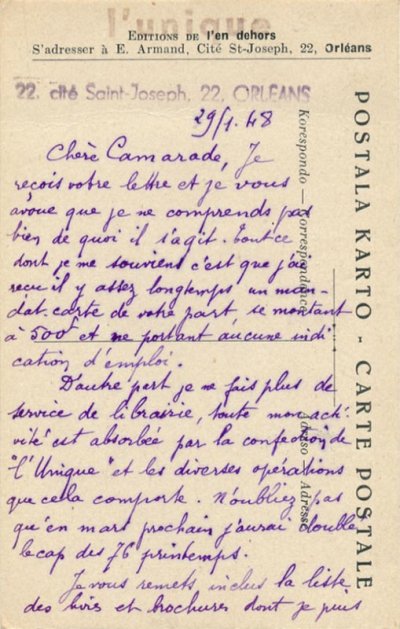 l'unique
EDITIONS DE l'en dehors
S'adresser à E. Armand, Cité St-Joseph, 22, Orléans
22. cité Saint-Joseph, 22, ORLEANS
29/1.48
Chère Camarade, Je
reçois votre lettre et je vous
avoue que je ne comprends pas
bien de quoi il s'agit. Tout ce
dont je me souviens c'est que j'ai
recu il y a assez longtemps un man-
dat-carte de votre part se montant
à 500f et ne portant aucune indi
cation d'emploi.
D'autre part je ne fais plus de
service de librairie, toute mon acti
vité est absorbée par la confection de
"l'Unique" et les diverses opérations
que cela comporte. N'oubliez pas
qu'en mars prochain j'aurai doublé
le cap des 76 printemps.
Je vous remets inclus la liste
des livres et brochures dont je puis
POSTALA KARTO - CARTE POSTALE
Korespondo — Correspondance
Adreso — Adresse